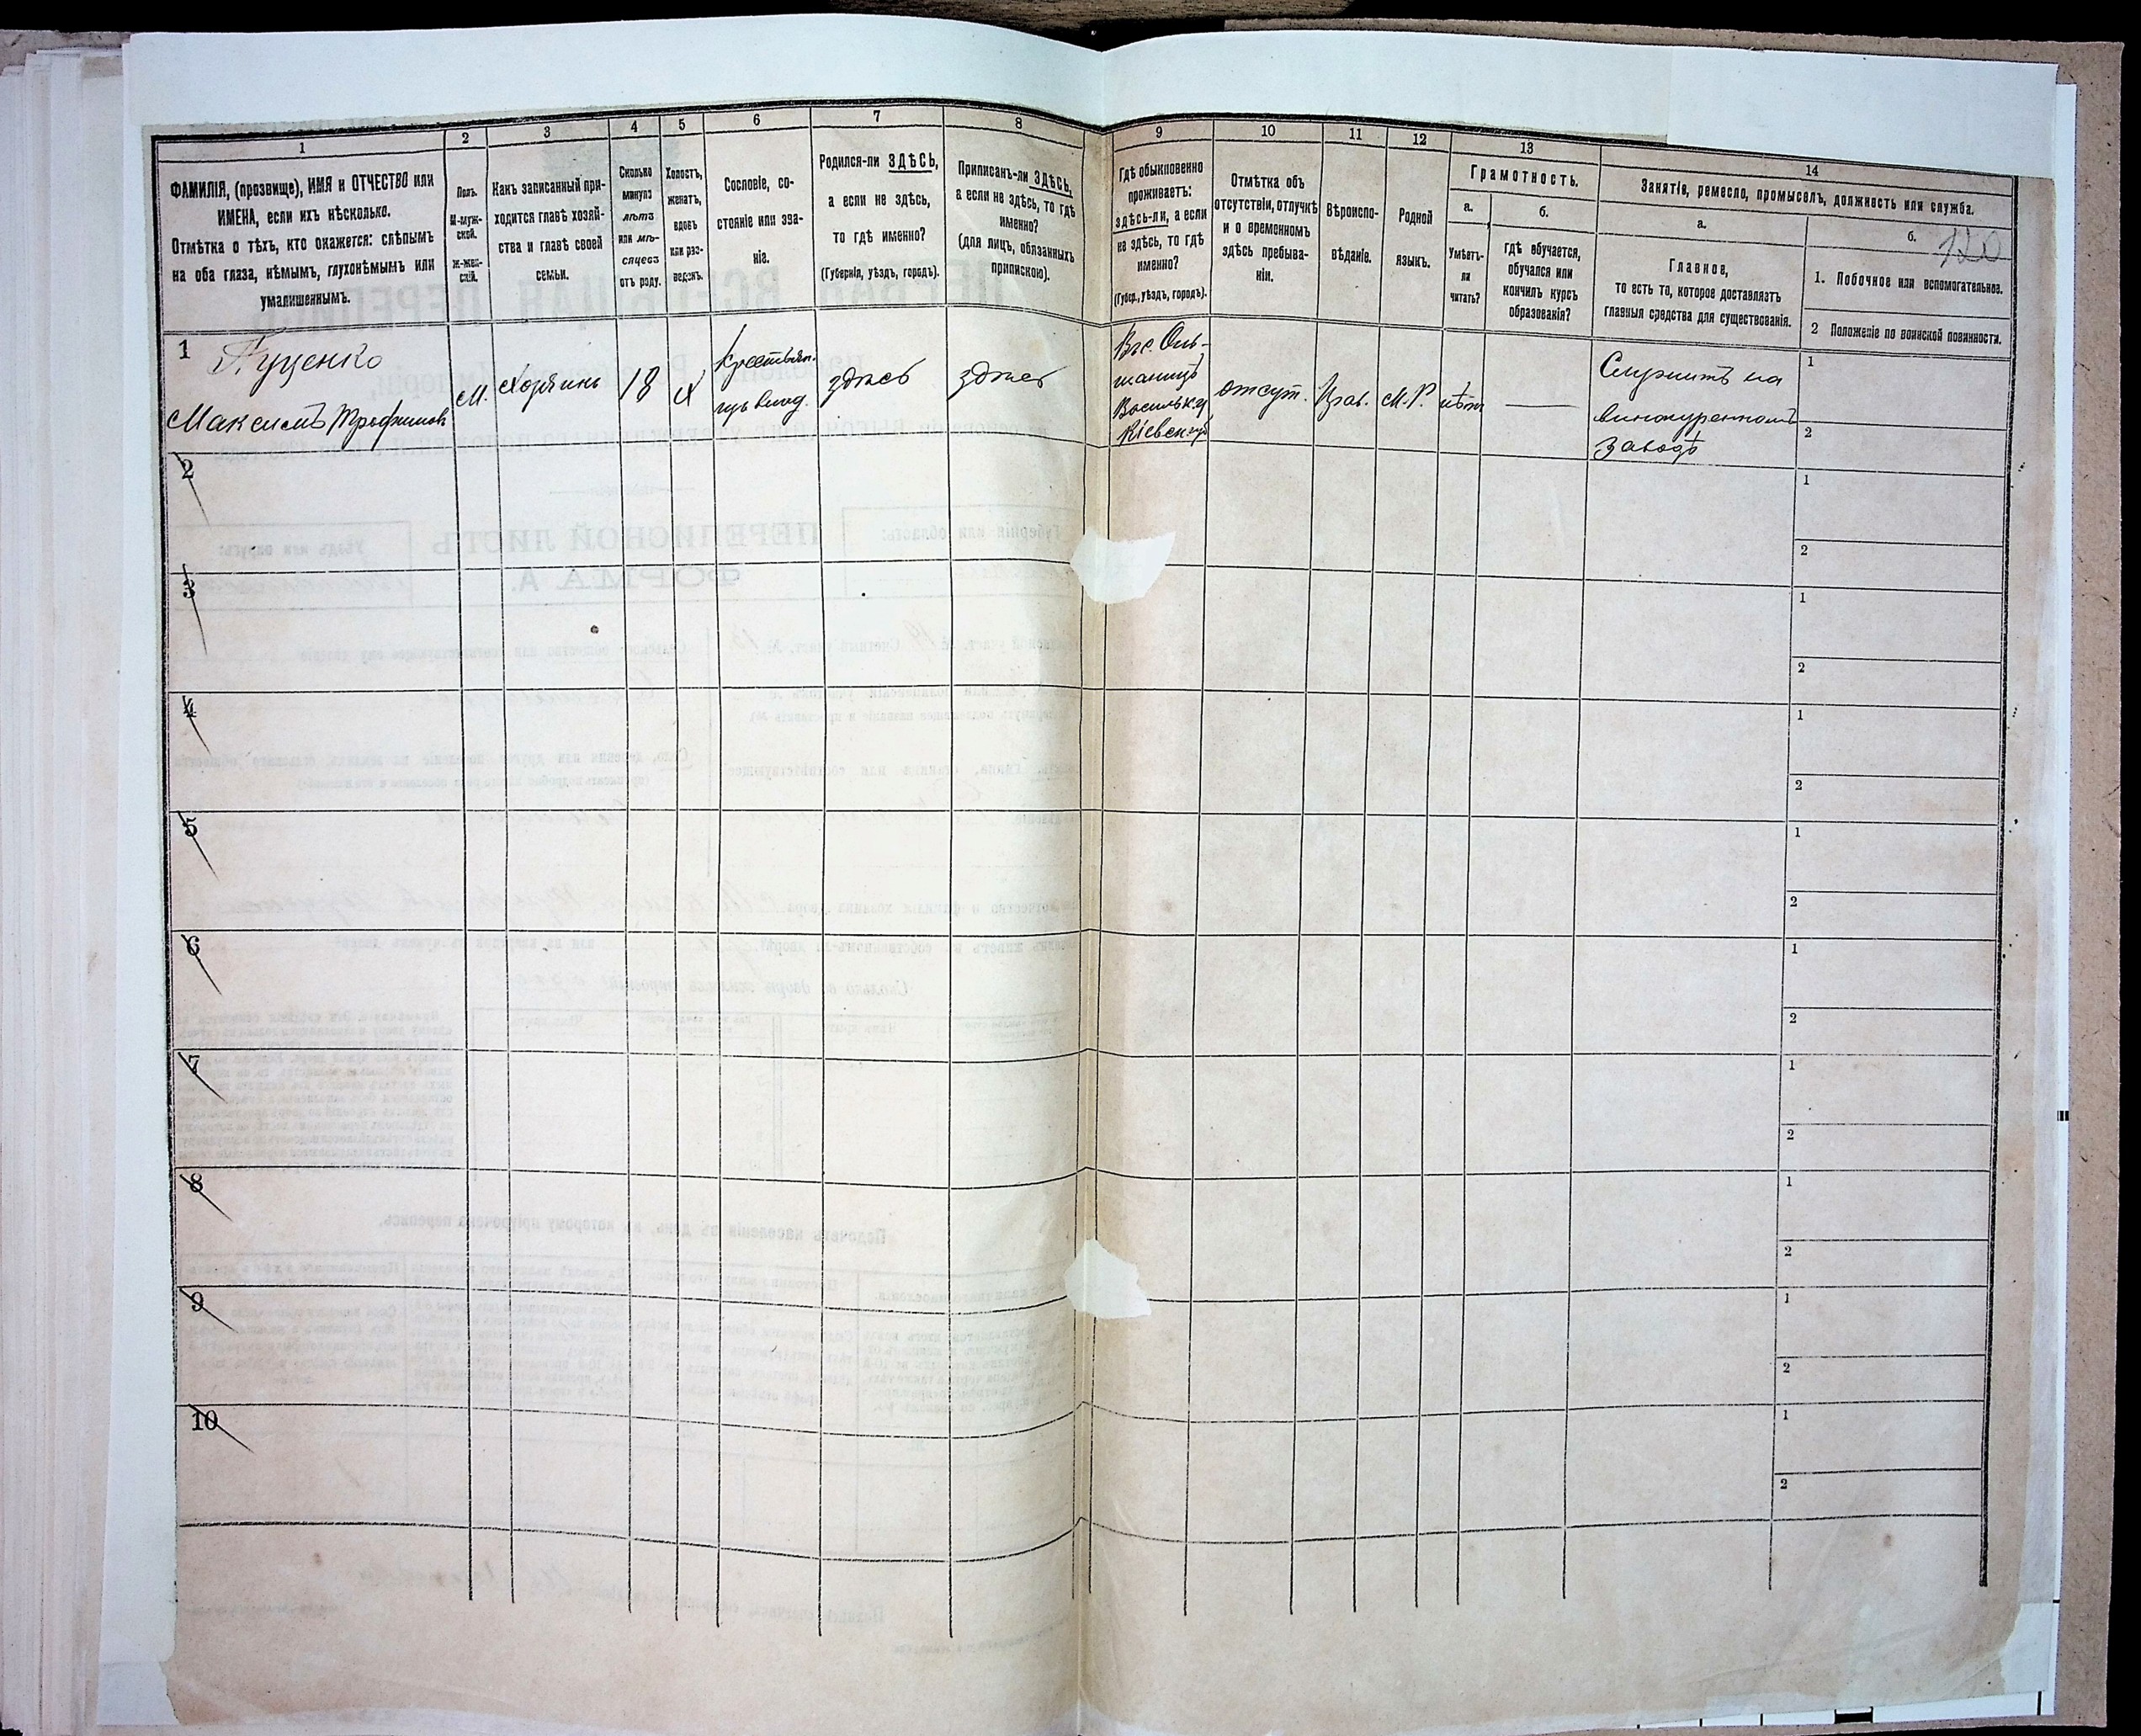 1
2
3
4
5
6
7
8
9
10
11
12
13
14
ФАМИЛІЯ, (прозвище), ИМЯ и ОТЧЕСТВО или
ИМЕНА, если ихъ нѣсколько.
Отмѣтка о тѣхъ, кто окажется: слѣпымъ
на оба глаза, нѣмымъ, глухонѣмымъ или
умалишеннымъ.
Полъ.
М-муж-
ской.
Ж-жен-
скій.
Какъ записанный при-
ходится главѣ хозяй-
ства и главѣ своей
семьи.
Сколько
минуло
лѣтъ
или мѣ-
сяцевъ
отъ роду.
Холостъ,
женатъ,
вдовъ
или раз-
веденъ.
Сословіе, со-
стояніе или зва-
ніе.
Родился-ли ЗДѢСЬ,
а если не здѣсь,
то гдѣ именно?
(Губернія, уѣздъ, городъ).
Приписанъ-ли ЗДѢСЬ,
а если не здѣсь, то гдѣ
именно?
(для лицъ, обязанныхъ
припискою).
Гдѣ обыкновенно
проживаетъ:
здѣсь-ли, а если
не здѣсь, то гдѣ
именно?
(Губер., уѣздъ, городъ).
Отмѣтка объ
отсутствіи, отлучкѣ
и о временномъ
здѣсь пребыва-
ніи.
Вѣроиспо-
вѣданіе.
Родной
языкъ.
Грамотность.
а.
Умѣетъ-
ли
читать?
б.
гдѣ обучается,
обучался или
кончилъ курсъ
образованія?
Занятіе, ремесло, промыселъ, должность или служба.
а.
Главное,
то есть то, которое доставляетъ
главныя средства для существованія.
б.
120
1. Побочное или вспомогательное.
2 Положеніе по воинской повинности.
1
Максимъ Трофимовъ
М.
Хозяинъ
18
Х
Крестьян.
здѣсь
здѣсь
Въ с. Оль-
шаницѣ
Васильк.
Кіевск. губ
отсут.
Прав.
М.Р.
нѣтъ
—
Служитъ на
винокуренномъ
заводѣ
1
2
2
1
2
3
1
2
4
1
2
5
1
2
6
1
2
7
1
2
8
1
2
9
1
2
10
1
2